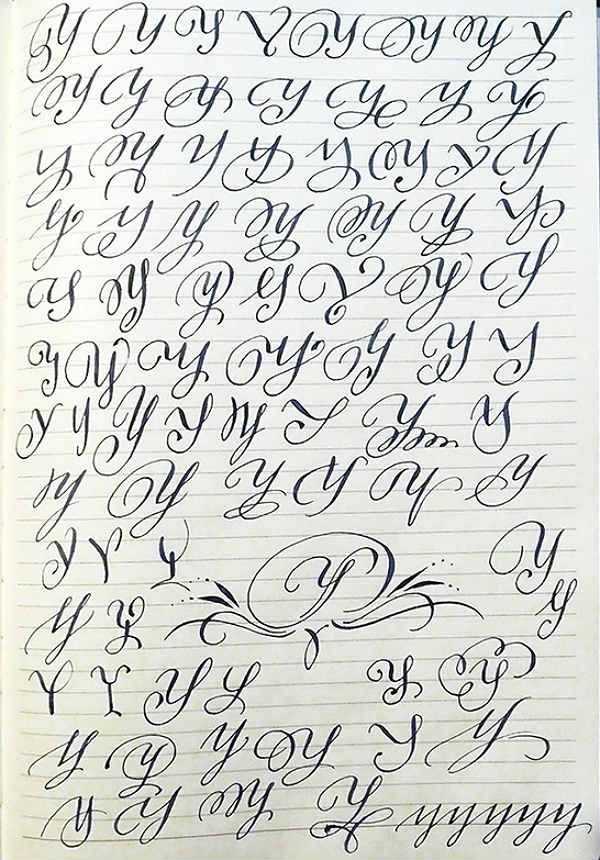 Y Y Y Y Y Y Y Y
Y Y Y Y Y Y Y
Y Y Y Y Y Y Y Y
Y Y Y Y Y Y Y
Y Y Y Y Y Y Y
Y Y Y Y Y Y Y
Y Y Y Y Y Y Y Y
Y Y Y Y Y Y
Y Y Y Y Y
Y Y Y
Y Y Y Y Y Y
Y Y Y Y Y Y
Y Y Y Y yyyyy